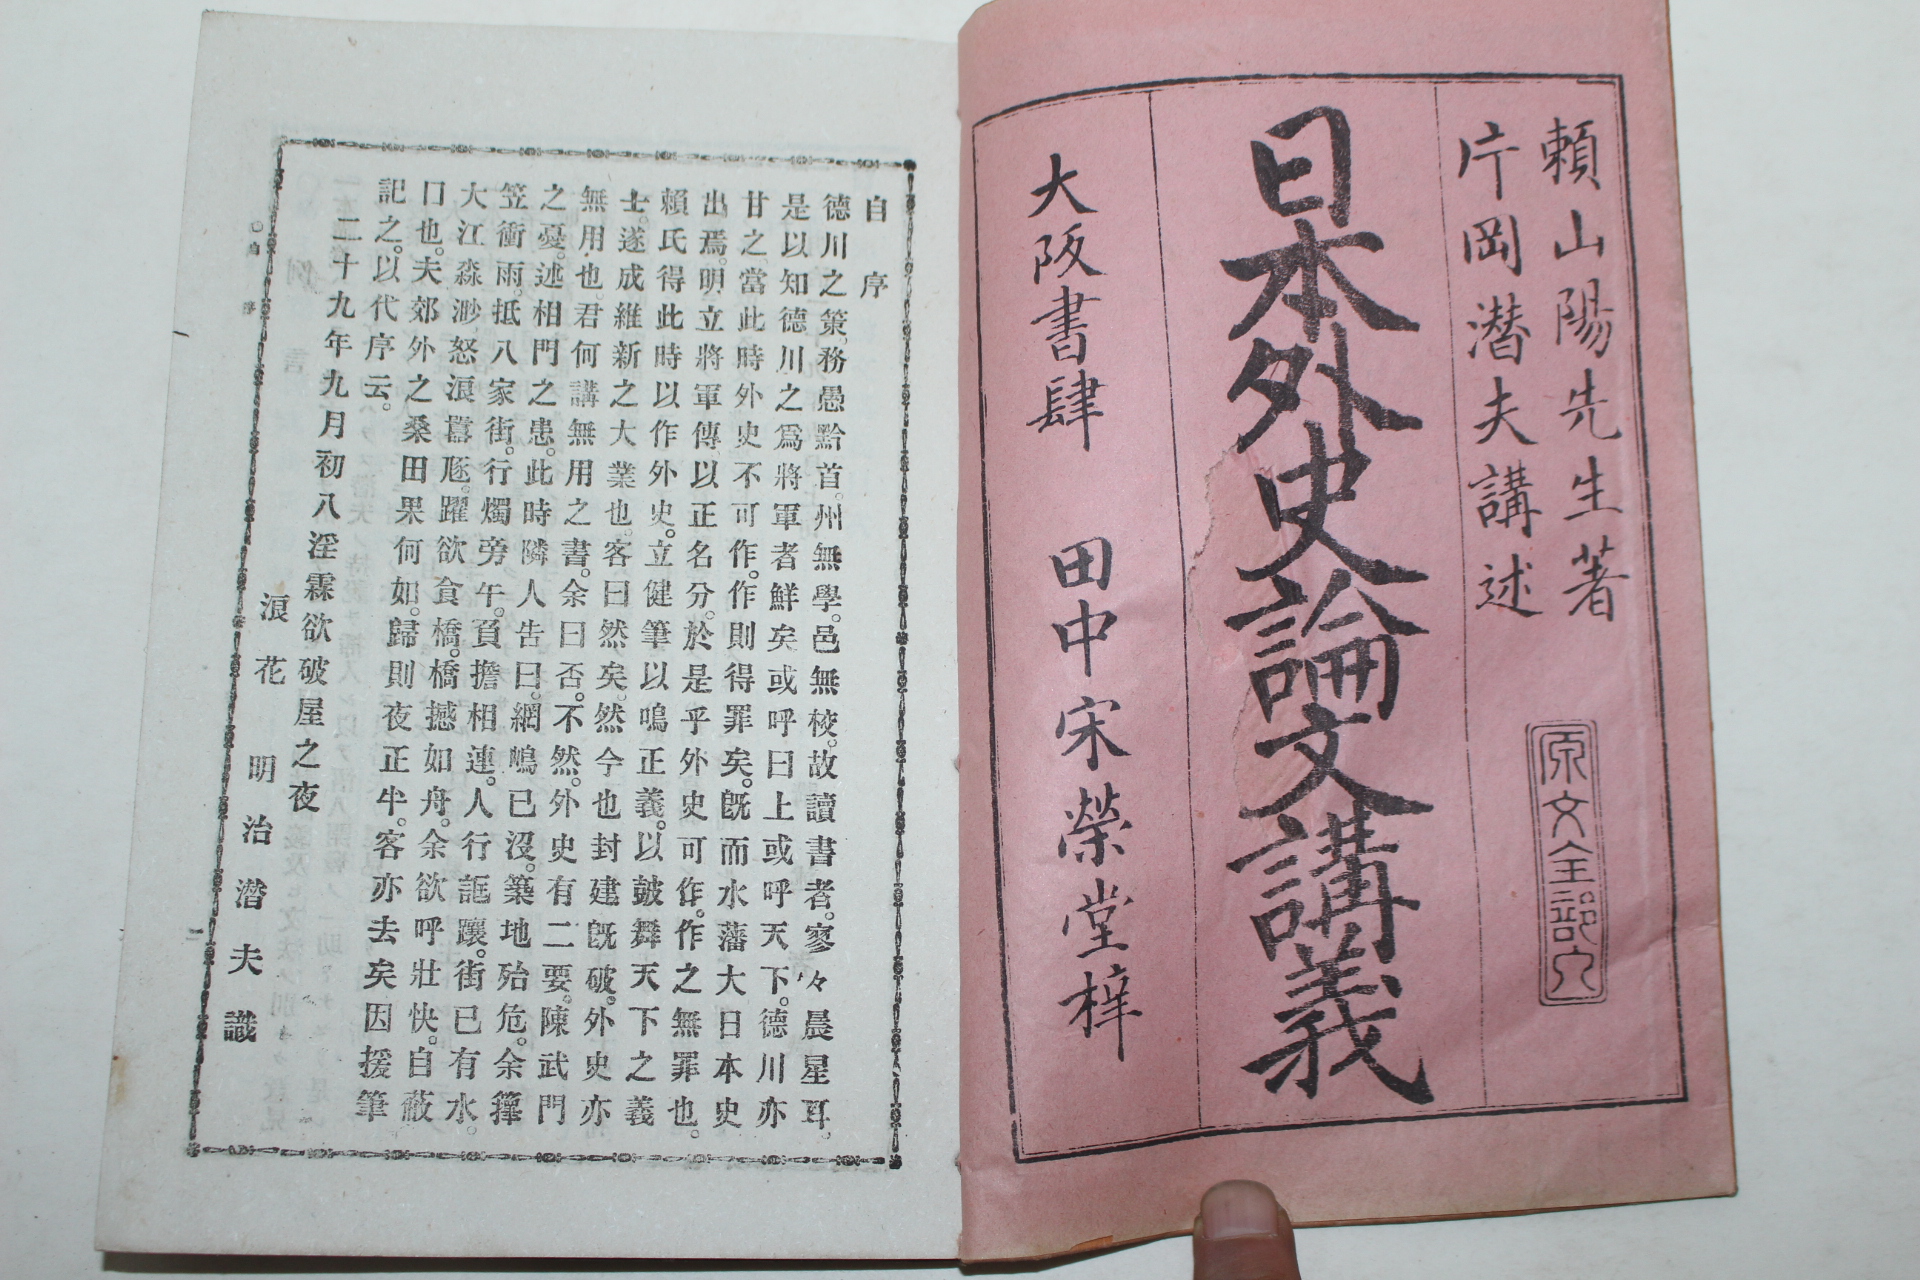 頼山陽先生著
片岡潜夫講述
原文全部入
日本外史論文講義
大阪書肆 田中宋榮堂梓
自序
德川之策。務愚黔首。州無學。邑無校。故讀書者。寥々晨星耳。
是以知德川之爲將軍者鮮矣或呼曰上或呼天下。德川亦
甘之。當此時外史不可作。作則得罪矣。既而水藩大日本史
出焉。明立將軍傳以正名分。於是乎外史可作。作之無罪也。
賴氏得此時以作外史。立健筆以鳴正義。以皷舞天下之義
士。遂成維新之大業也。客曰然矣。然今也封建既破。外史亦
無用也。君何講無用之書。余曰否。不然。外史有二要。陳武門
之憂。述相門之患。此時隣人告曰。網嶋已沒。築地殆危。余籜
笠衝雨。抵八家街。行燭旁午。負擔相連。人行詎躟。街已有水。
大江淼渺。怒浪囂豗。躍欲食橋。橋撼如舟。余欲呼壯快。自蔽
口也。夫郊外之桑田果何如。歸則夜正半。客亦去矣因援筆
記之。以代序云。
二十九年九月初八淫霖欲破屋之夜
浪花 明治潜夫識
自序